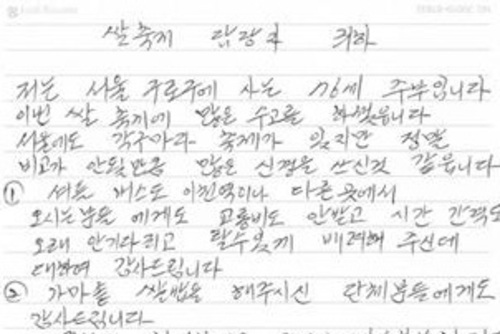 쌀축제 담당자 귀하
저는 서울 구로구에 사는 76세 주부입니다
이번 쌀 축제에 많은 수고를 하셨읍니다
서울에도 각구마다 축제가 있지만 정말
비교가 안될만큼 많은 신경을 쓰신것 같읍니다
① 셔틀 버스도 이천역이나 다른 곳에서
오시는분들에게도 교통비도 안받고 시간 간격도
오래 안기다리고 탈수있게 배려해 주신데
대하여 감사드립니다
② 가마솥 쌀밥을 해주시신 단체분들에게도
감사드립니다